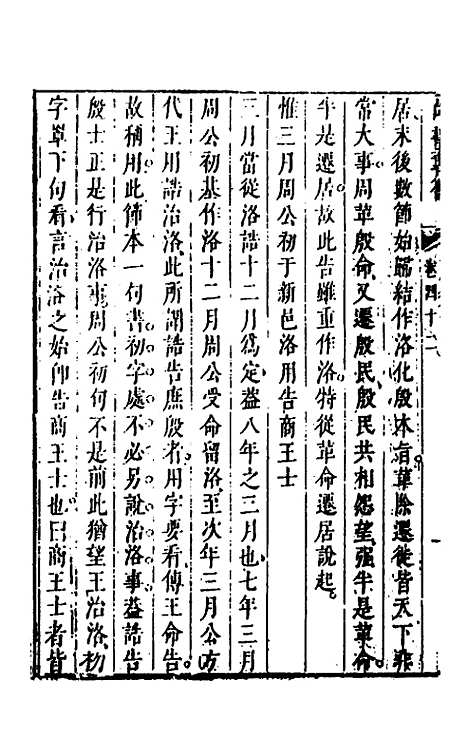 卷四十二
居末後數節始歸結作洛化殷本旨革除遷徙皆天下非
常大事周革殷命又遷殷民殷民共相怨望強半是革命
半是遷居故此告雖重作洛特從革命遷居說起
惟三月周公初于新邑洛用告商王士
三月當從洛誥十二月為定葢八年之三月也七年三月
周公初基作洛十二月周公受命留洛至次年三月公方
代王用誥治洛此所謂誥告庶殷者用字要看傳王命告
故稱用此節本一句書初字處不必另說治洛事葢誥告
殷士正是行治洛事周公初何不是前此猶望王治洛初
字單下句看言治洛之始卽告商王士也曰商王士者皆